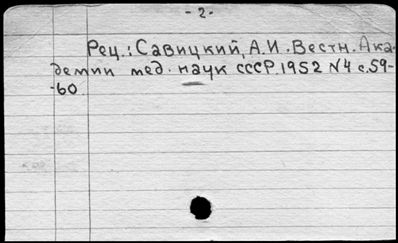 - 2 -
Рец.: Савицкий, А.И. Вестн. Ака-
демии мед. наук СССР. 1952 №4 с.59-
-60